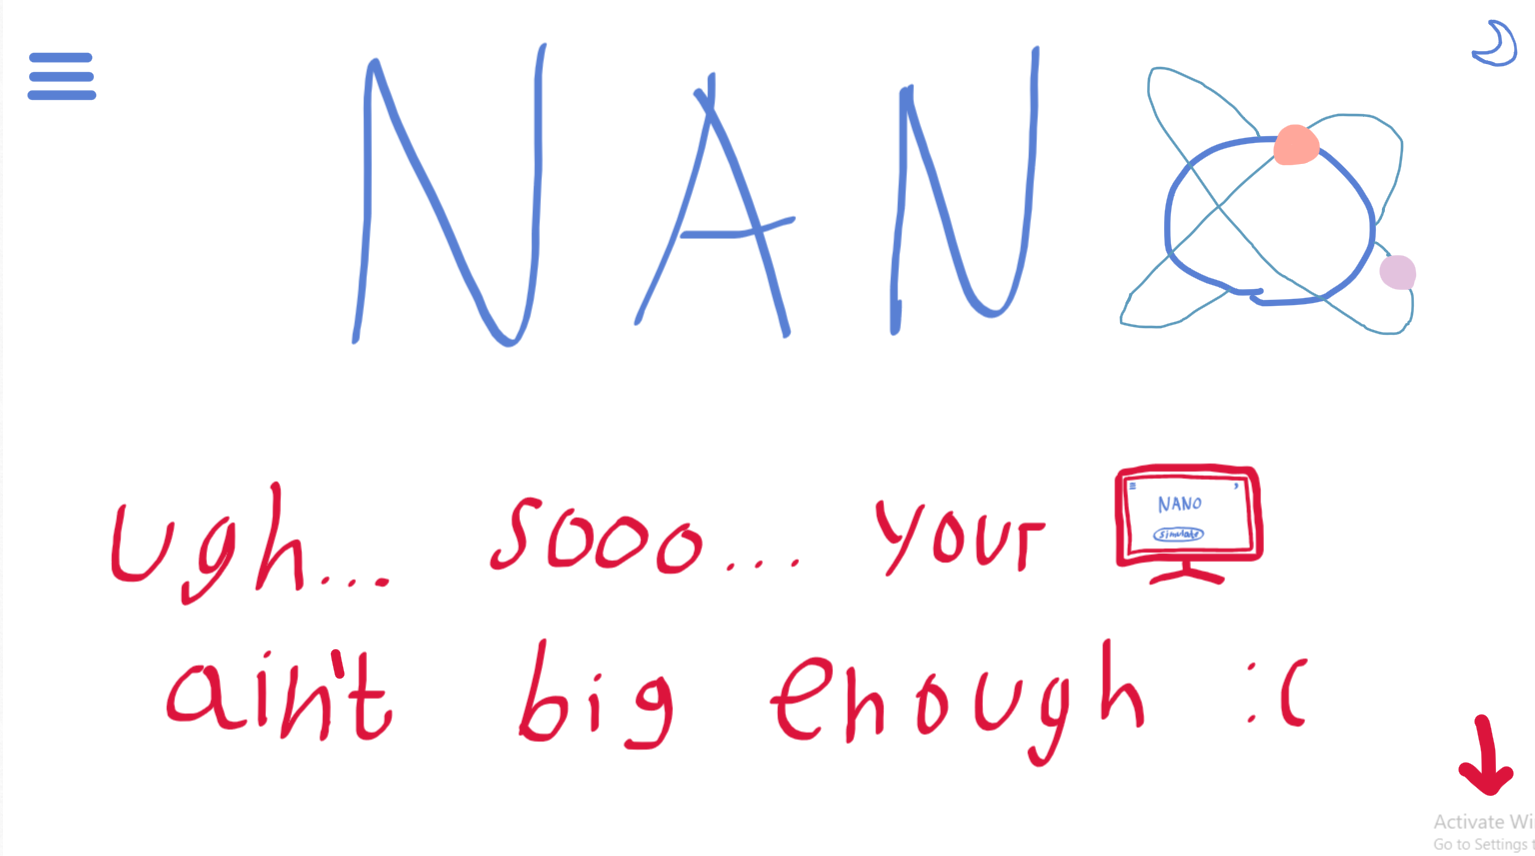 NANO
ugh... sooo... your
NANO
simulate
ain't big enough :(
Activate Wi
Go to Settings t